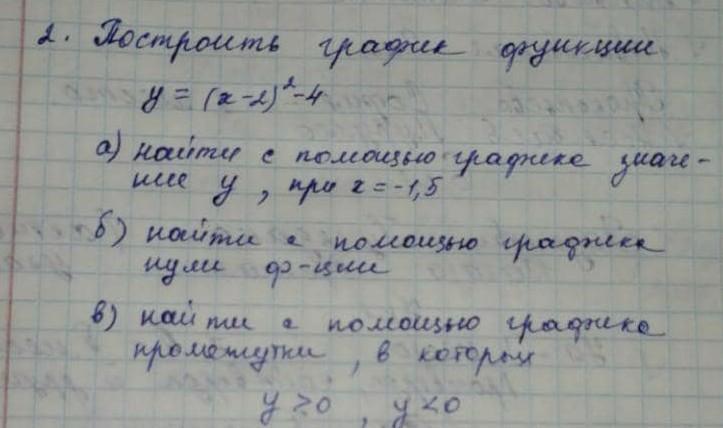 2. Построить график функции
y = (x-2)²-4
а) найти с помощью графика значе-
ние y, при x = -1,5
б) найти с помощью графика
нули ф-ции
в) найти с помощью графика
промежутки, в которых
y > 0, y < 0